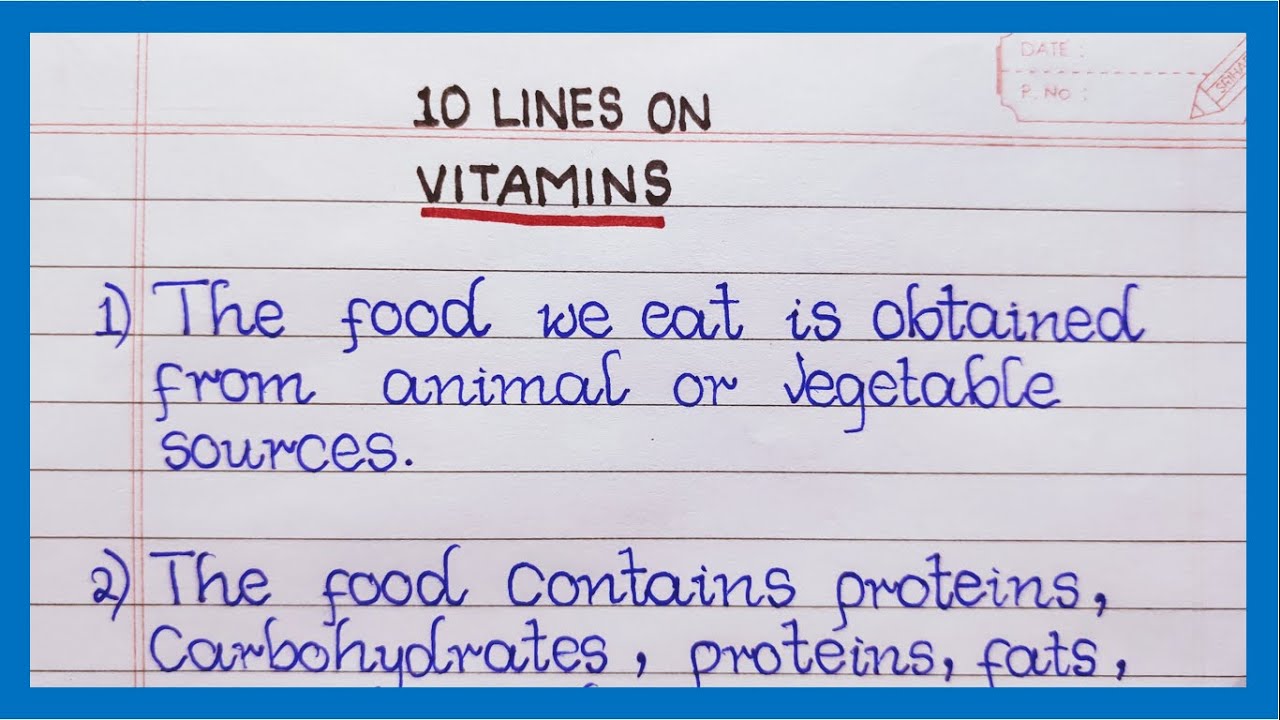 DATE :
P. NO :
10 LINES ON
VITAMINS
1) The food we eat is obtained
from animal or vegetable
sources.
2) The food contains proteins,
Carbohydrates, proteins, fats,